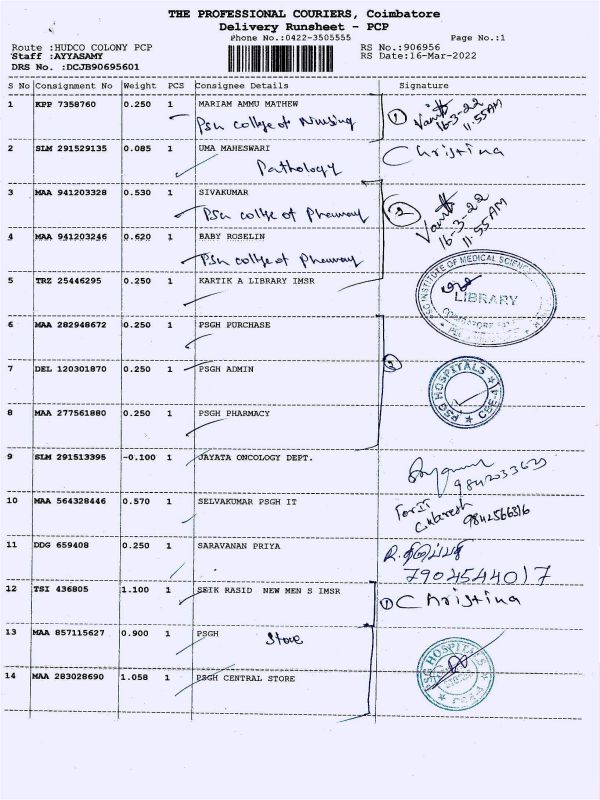 THE PROFESSIONAL COURIERS, Coimbatore
Delivery Runsheet - PCP
Phone No.:0422-3505555
Page No.:1
Route :HUDCO COLONY PCP
RS No.:906956
Staff :AYYASAMY
RS Date:16-Mar-2022
DRS No. :DCJB90695601
S No Consignment No Weight PCS Consignee Details Signature
1 KPP 7358760 0.250 1 MARIAM AMMU MATHEW
PSG college of Nursing
① 16-3-22
11:55AM
2 SLM 291529135 0.085 1 UMA MAHESWARI Christina
Pathology
3 MAA 941203328 0.530 1 SIVAKUMAR
PSG collge of Pharmacy
② 16-3-22
11:55AM
4 MAA 941203246 0.620 1 BABY ROSELIN
PSG collge of Pharmacy
5 TRZ 25446295 0.250 1 KARTIK A LIBRARY IMSR
PSG INSTITUTE OF MEDICAL SCIENCES
LIBRARY
6 MAA 282948672 0.250 1 PSGH PURCHASE
7 DEL 120301870 0.250 1 PSGH ADMIN
③ PSG HOSPITALS
8 MAA 277561880 0.250 1 PSGH PHARMACY
9 SLM 291513395 -0.100 1 JAYATA ONCOLOGY DEPT.
10 MAA 564328446 0.570 1 SELVAKUMAR PSGH IT
For IT
11 DDG 659408 0.250 1 SARAVANAN PRIYA
7904544017
12 TSI 436805 1.100 1 SEIK RASID NEW MEN S IMSR
① Christina
13 MAA 857115627 0.900 1 PSGH Store
PSG HOSPITALS
14 MAA 283028690 1.058 1 PSGH CENTRAL STORE